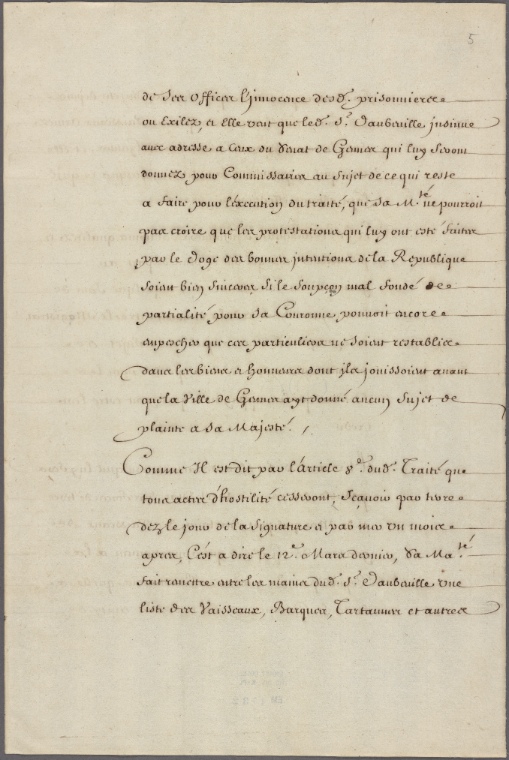 5
de ses Officers l'jnnocence desd. prisonnieres
ou Exilez, et Elle veut que led. S.r Daubeville jnsinue
avec adresse a Ceux du Senat de Gennes qui luy seront
donnez pour Commissaires au sujet de ce qui reste
a faire pour l'éxecution du traité, que sa M.té ne pourroit
pas croire que les protestations qui luy ont esté faites
par le doge des bonnes jntentions de la Republique
soient bien sinceres si le soupçon mal fondé de
partialité pour sa Couronne pouvoit encore
empescher que ces particuliers ne soient restablis
dans les biens et honneurs dont jls jouissoient avant
que la Ville de Gennes ayt donné aucun sujet de
plainte a sa Majesté. /
Comme Il est dit par l'article 8.e dud. Traité que
tous actes d'hostilité cesseront, Sçavoir par terre
dez le jour de la signature et par mer un mois
apres, C'est a dire le 12.e Mars dernier, Sa Ma.té
fait remettre entre les mains dud. S.r Daubeville une
liste des Vaisseaux, Barques, Tartannes et autres